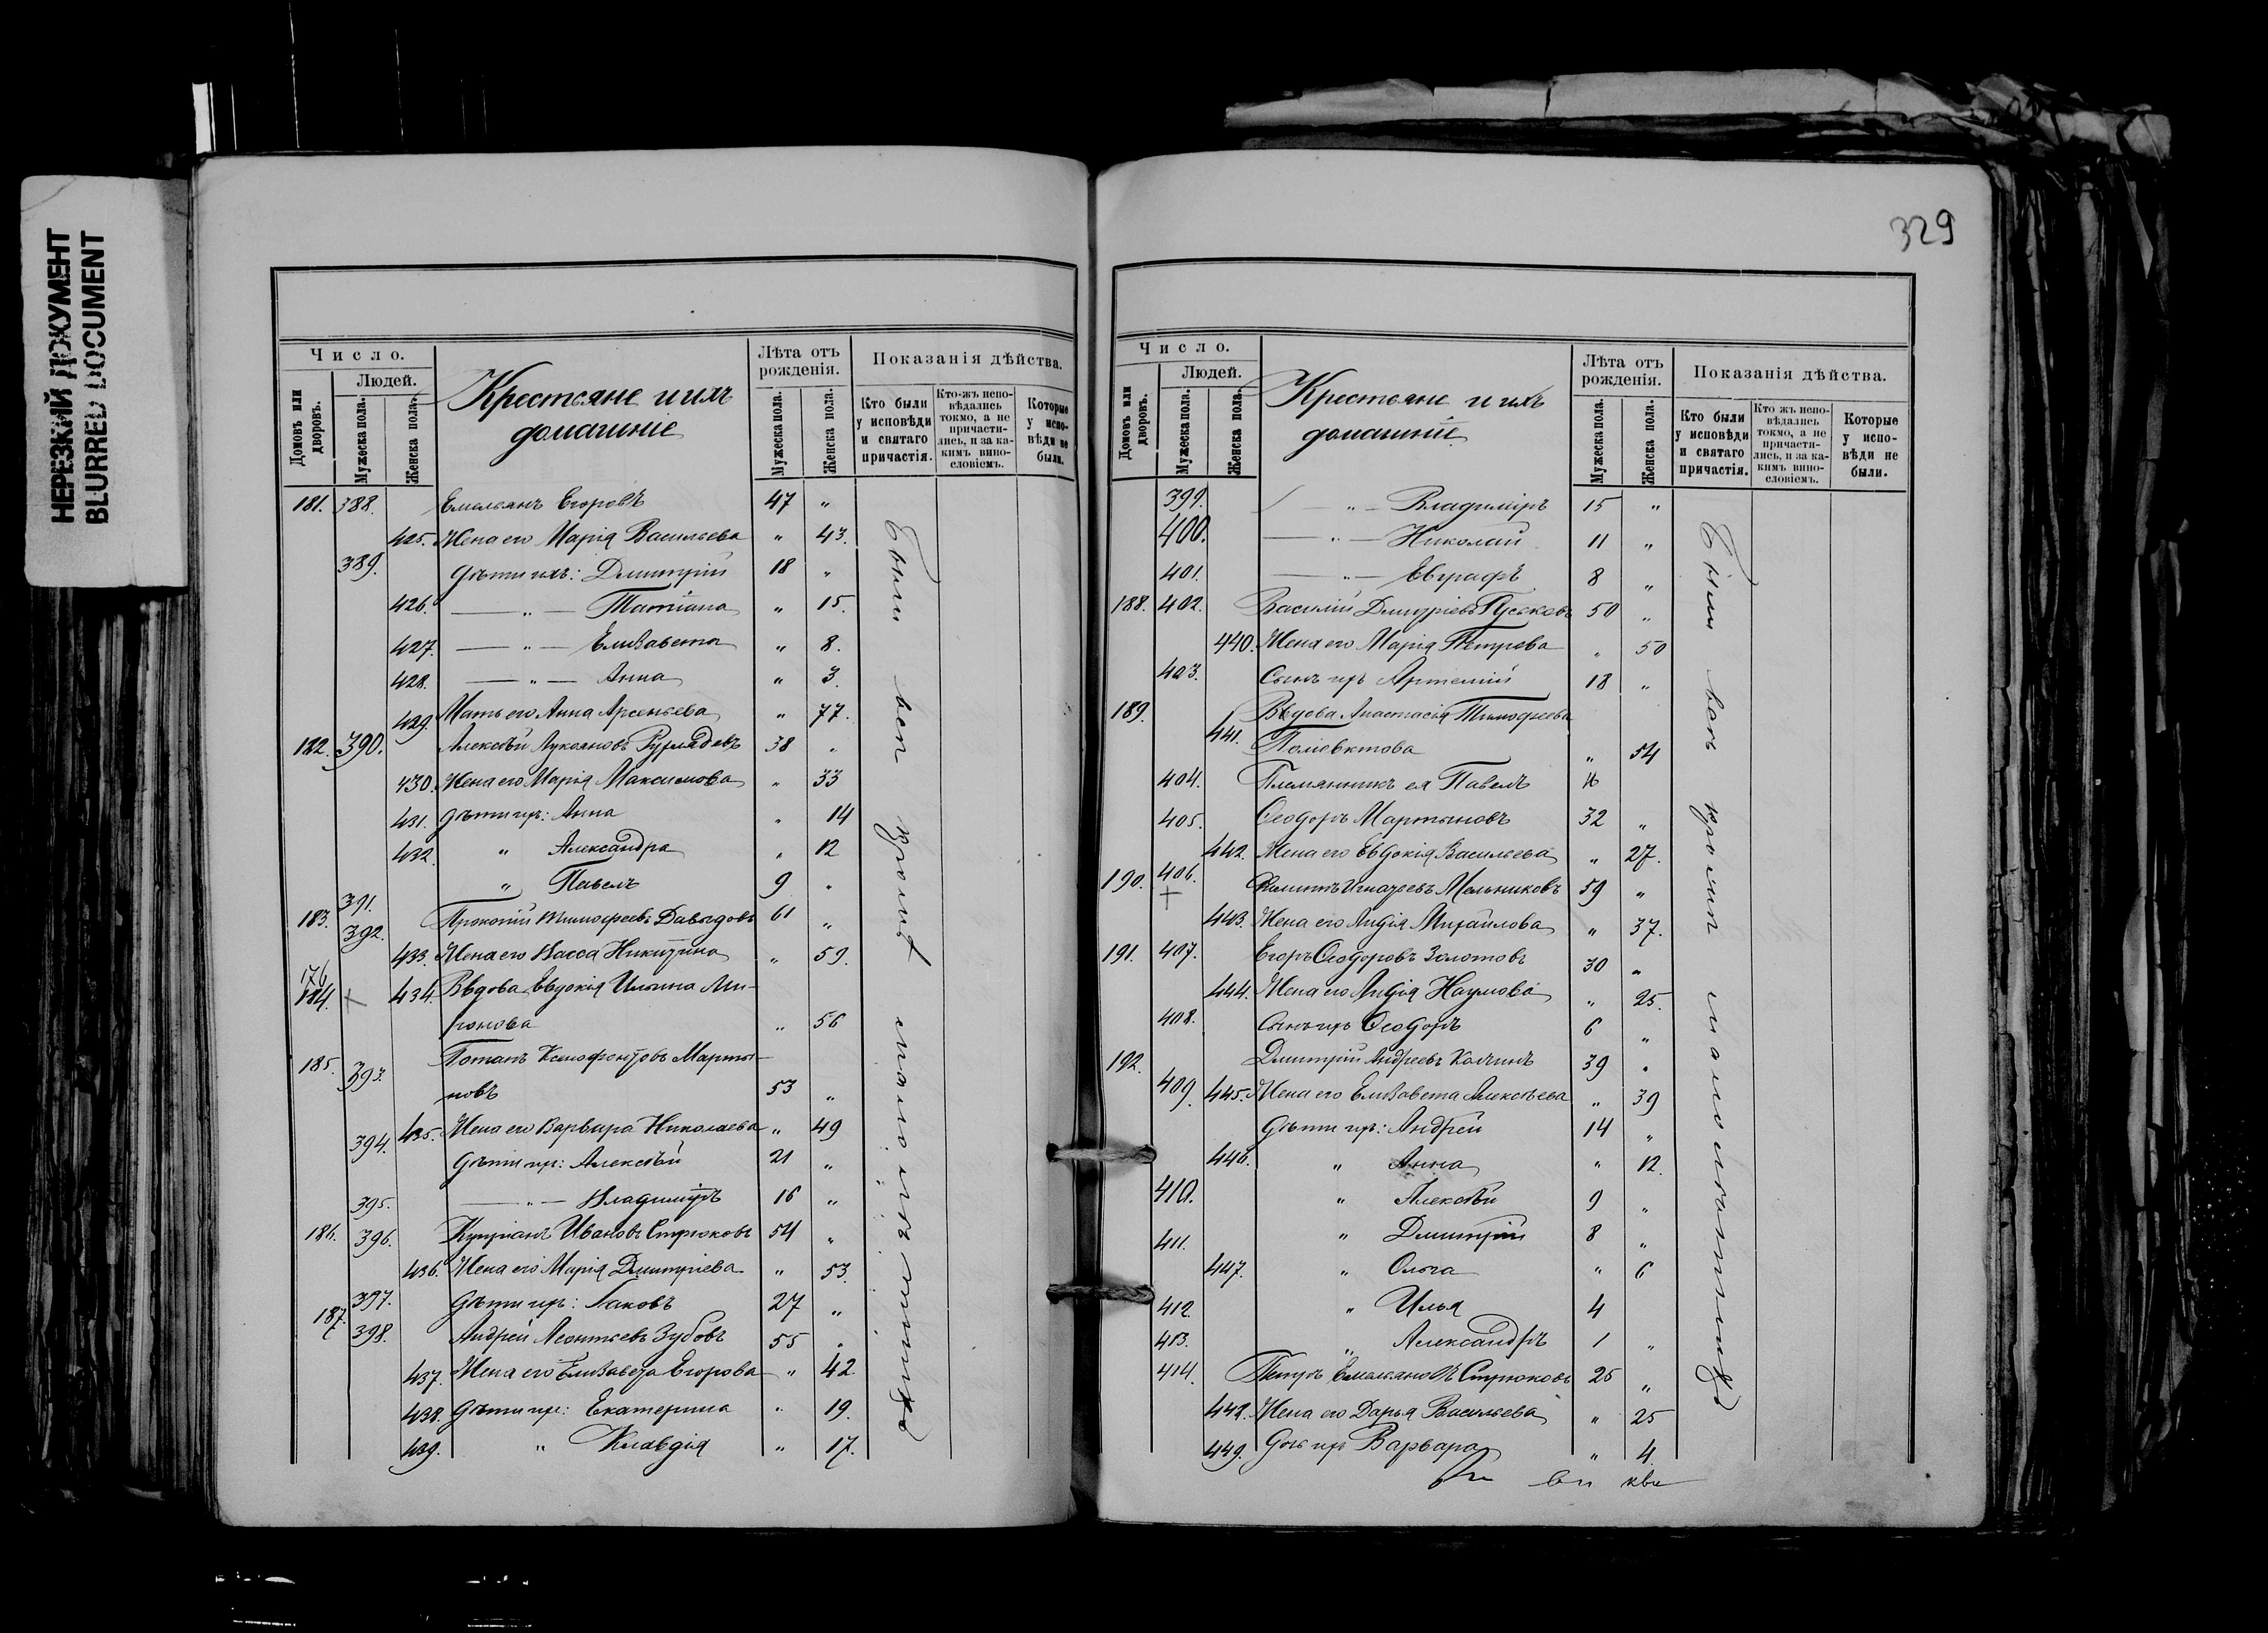 НЕРЕЗКИЙ ДОКУМЕНТ
BLURRED DOCUMENT
Число.
Домовъ или дворовъ.
Людей.
Мужеска пола.
Женска пола.
Крестьяне и ихъ
домашніе
Лѣта отъ рожденія.
Мужеска пола.
Женска пола.
Показанія дѣйства.
Кто были у исповѣди и святаго причастія.
Кто-жъ исповѣдались токмо, а не причастились, и за какимъ винословіемъ.
Которые у исповѣди не были.
181. 388. Емельянъ Егоровъ 47 "
425. Жена его Марія Васильева " 43.
389. Дѣти ихъ: Дмитрій 18 "
426. — " — Татіана " 15.
427. — " — Елизавета " 8.
428. — " — Анна " 3.
429. Мать его Анна Арсеньева " 77.
182. 390. Алексѣй Лукояновъ 38 "
430. Жена его Марія Максимова " 33
431. Дѣти ихъ: Анна " 14
432. " Александра " 12
391. " Павелъ 9 "
183. 392. Прокопій Тимофеевъ Давыдовъ 61 "
433. Жена его Васса Никитина " 59.
176
184. + 434. Вдова Евдокія Ильина Ми-
ронова " 56
185. 393. Потапъ Ксенофонтовъ Марты-
новъ 53 "
435. Жена его Варвара Николаева " 49
394. Дѣти ихъ: Алексѣй 21 "
395. — " — Владиміръ 16 "
186. 396. Купріанъ Ивановъ Стрюковъ 54 "
436. Жена его Марія Дмитріева " 53.
397. Дѣти ихъ: Іаковъ 27 "
187. 398. Андрей Леонтьевъ Зубовъ 55 "
437. Жена его Елизавета Егорова " 42.
438. Дѣти ихъ: Екатерина " 19.
439. " Клавдія " 17.
Были вси кромѣ малолѣтнихъ
329
Число.
Домовъ или дворовъ.
Людей.
Мужеска пола.
Женска пола.
Крестьяне и ихъ
домашніе
Лѣта отъ рожденія.
Мужеска пола.
Женска пола.
Показанія дѣйства.
Кто были у исповѣди и святаго причастія.
Кто жъ исповѣдались токмо, а не причастились, и за какимъ винословіемъ.
Которые у исповѣди не были.
399. — " — Владиміръ 15 "
400. — " — Николай 11 "
401. — " — Евграфъ 8 "
188. 402. Василій Дмитріевъ Гуськовъ 50 "
440. Жена его Марія Петрова " 50
403. Сынъ ихъ Артемій 18 "
189. Вдова Анастасія Тимофеева
441. Поліевктова " 54
404. Племянникъ ея Павелъ
405. Ѳеодоръ Мартыновъ 32 "
442. Жена его Евдокія Васильева " 27.
190. 406. + Филиппъ Игнатьевъ Мельниковъ 59 "
443. Жена его Лидія Михайлова " 37.
191. 407. Егоръ Ѳеодоровъ Золотовъ 30 "
444. Жена его Лидія Наумова " 25.
408. Сынъ ихъ Ѳеодоръ 6 "
192. Дмитрій Андреевъ Калинъ 39 "
409. 445. Жена его Елизавета Алексѣева " 39
Дѣти ихъ: Андрей 14 "
446. " Анна " 12.
410. " Алексѣй 9 "
411. " Дмитрій 8 "
447. " Ольга " 6
412. " Илья 4
413. " Александръ 1 "
414. Петръ Емельяновъ Стрюковъ 26 "
448. Жена его Дарья Васильева " 25
449. Дочь ихъ Варвара " 4.
Были всѣ кромѣ малолѣтнихъ